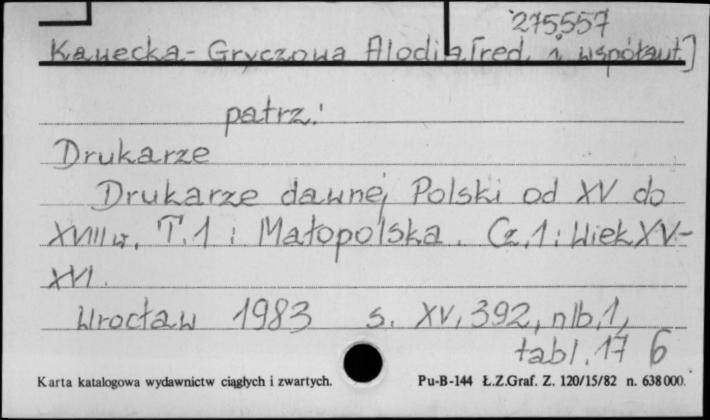 275,557
Kawecka-Gryczowa Alodia [red. i współaut.]
patrz:
Drukarze
Drukarze dawnej Polski od XV do
XVIII w. T.1 : Małopolska. Cz.1 : Wiek XV-
XVI.
Wrocław 1983 s. XV, 392, nlb.1,
tabl. 17 6
Karta katalogowa wydawnictw ciągłych i zwartych. Pu-B-144 Ł.Z.Graf. Z. 120/15/82 n. 638 000.